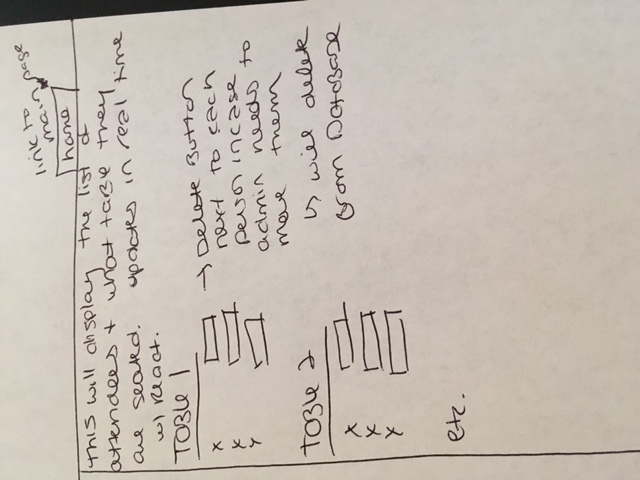 link to
main page
home
This will display the list of
attendees + what table they
are seated. updates in real time
w/ React.
Table 1
x
x
x
→ Delete Button
next to each
person in case
admin needs to
move them
↳ will delete
from Database
Table 2
x
x
x
etc.